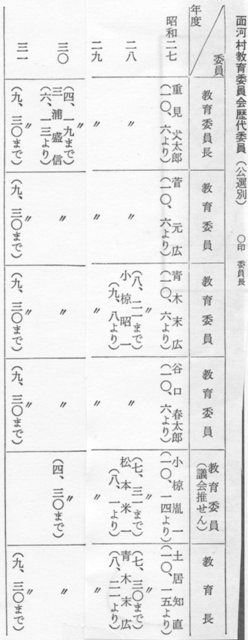 面河村教育委員会歴代委員(公選別) ○印 委員長
年度 委員 教育委員長 教育委員 教育委員 教育委員 教育委員(議会推せん) 教育長
昭和二七 重見丈太郎 菅元広 青木末広 谷口春太郎 小椋嵐一 土居知直
(一〇、六より) (一〇、六より) (一〇、六より) (一〇、六より) (一〇、一四より) (一〇、一五より)
二八 〃 〃 〃 〃 〃 〃
(八、二一まで) (七、三一まで) (七、三〇まで)
小椋昭一 松本米一 青木末広
(九、八より) (八、一より) (八、二一より)
二九 〃 〃 〃 〃 〃 〃
三〇 〃 〃 〃 〃 〃 〃
(四、一九まで) (四、三〇まで)
三浦盛信
(六、一三より)
三一 〃 〃 〃 〃 〃
(九、三〇まで) (九、三〇まで) (九、三〇まで) (九、三〇まで) (九、三〇まで)